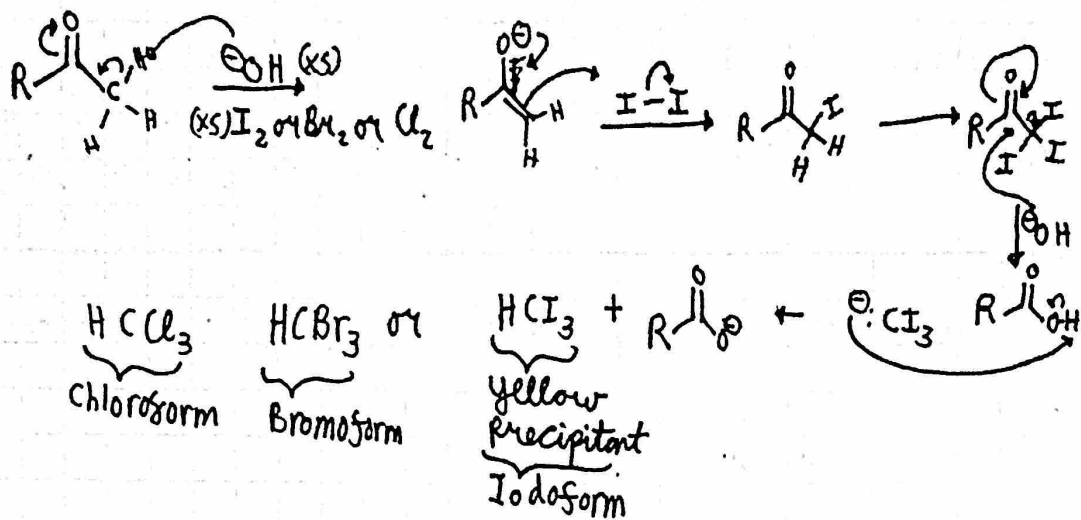 O
R C H H H ⊖OH (xs)
(xs) I₂ or Br₂ or Cl₂
O⊖ R H H
I-I
O R I H H
O R I I I
⊖OH
HCCl₃ HCBr₃ or HCI₃ + R O O⊖ ⊖:CI₃ R O OH
Chloroform Bromoform Yellow
Precipitant
Iodoform